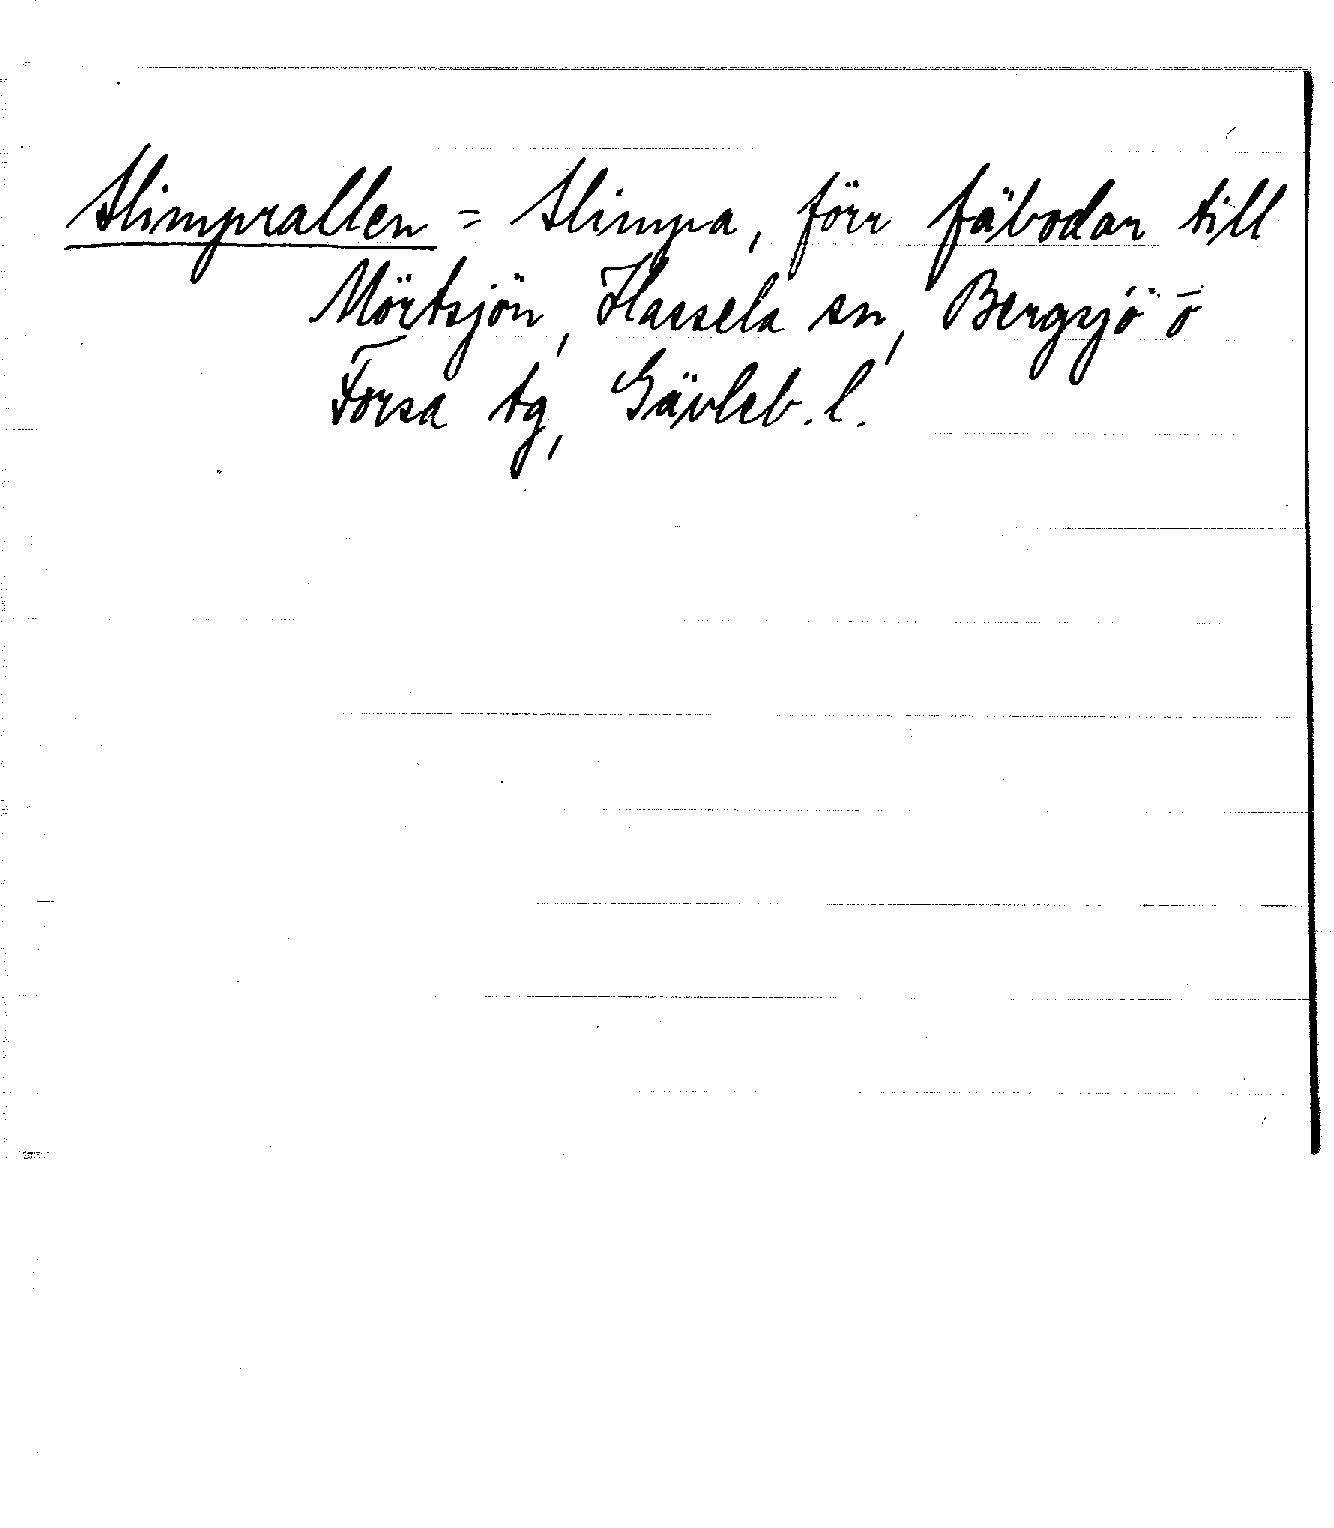 Slimprallen = Slimpa, förr fäbodar till
Mörtsjön, Hassela sn, Bergsjö o
Forsa tg, Gävleb. l.